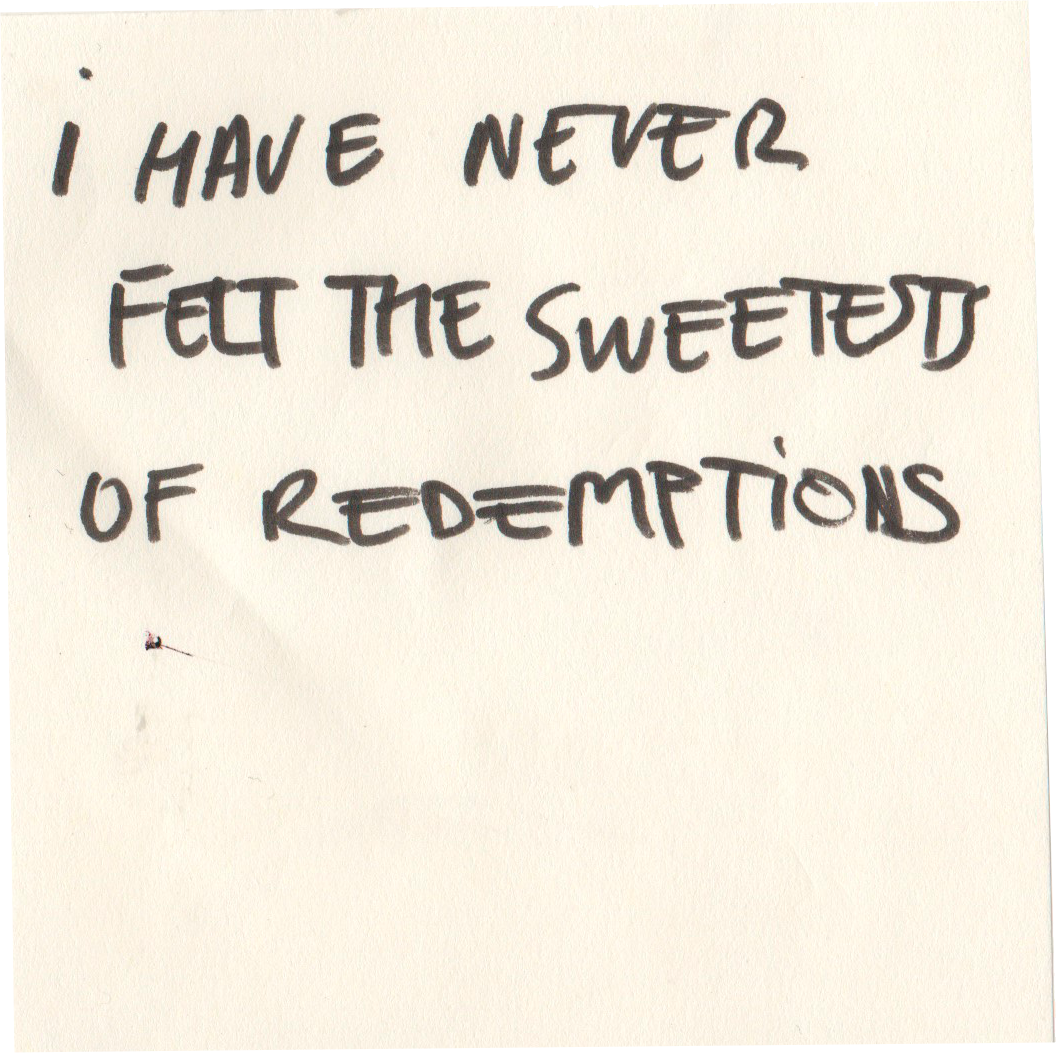 i HAVE NEVER
FELT THE SWEETESTS
OF REDEMPTiONS